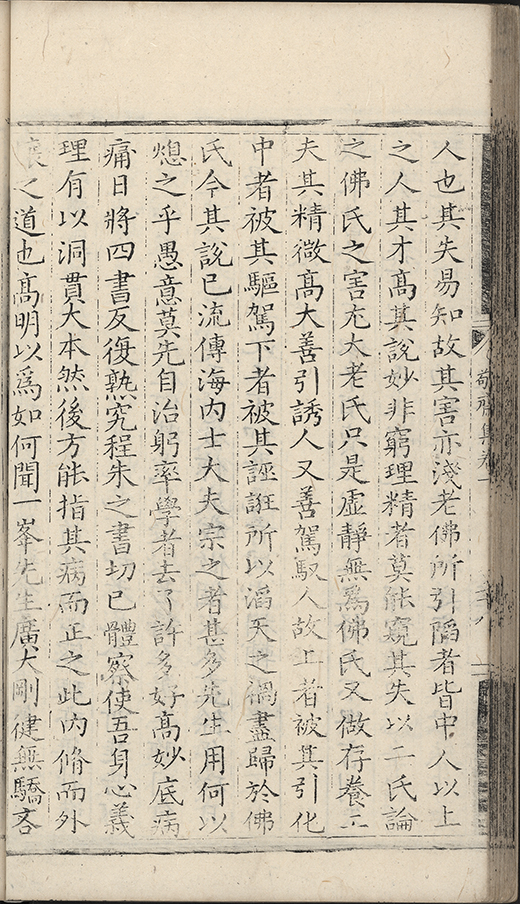 敬齋集卷一
人也其失易知故其害亦淺老佛所引陷者皆中人以上
之人其才高其說妙非窮理精者莫能窺其失以二氏論
之佛氏之害尤大老氏只是虛靜無爲佛氏又做存養工
夫其精微高大善引誘人又善駕馭人故上者被其引化
中者被其驅駕下者被其誣誑所以滔天之禍盡歸於佛
氏今其說已流傳海內士大夫宗之者甚多先生用何以
熄之乎愚意莫先自治躬率學者去了許多好高妙底病
痛日將四書反復熟究程朱之書切已體察使吾身心義
理有以洞貫大本然後方能指其病而正之此內脩而外
攘之道也高明以爲如何聞一峯先生廣大剛健無驕吝